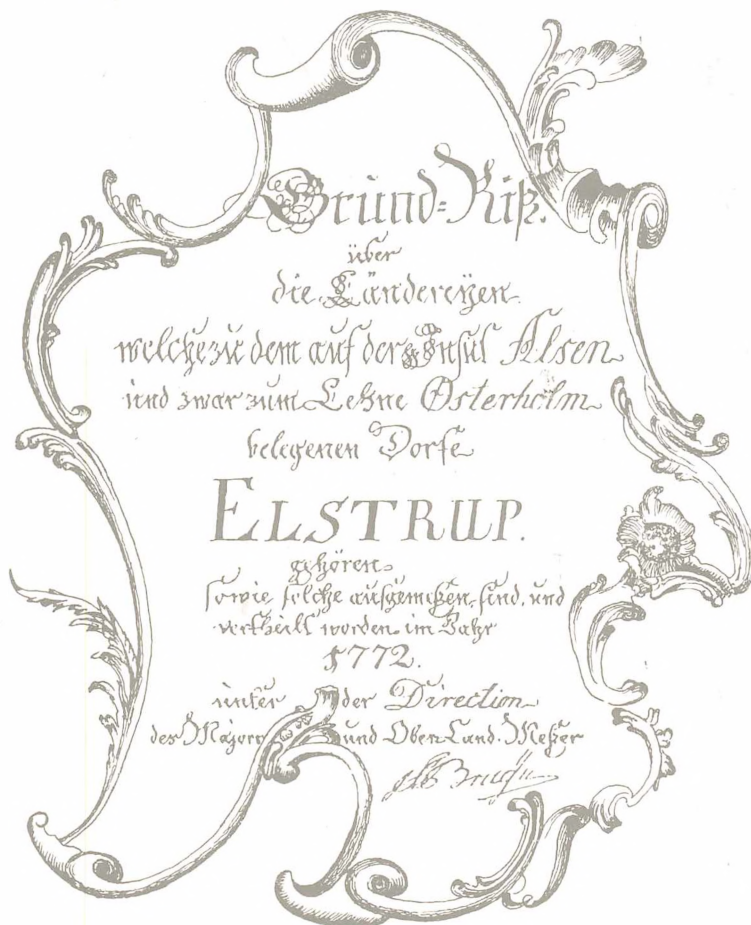 Grund=Riß.
über
die Ländereÿen
welche zu dem auf der Insul Alsen
und zwar zum Lehne Osterholm
belegenen Dorfe
ELSTRUP.
gehören
sowie solche ausgemeßen sind, und
vertheilt worden im Jahr
1772.
unter der Direction
des Majors und Ober Land-Meßer